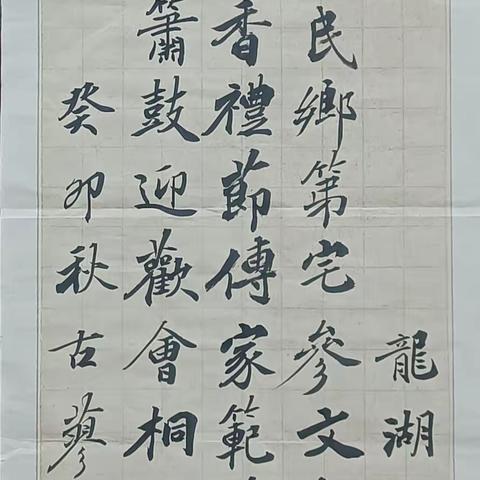 龍湖
民鄉第宅參文
香禮節傳家範
簫鼓迎歡會桐
癸卯秋古蓼